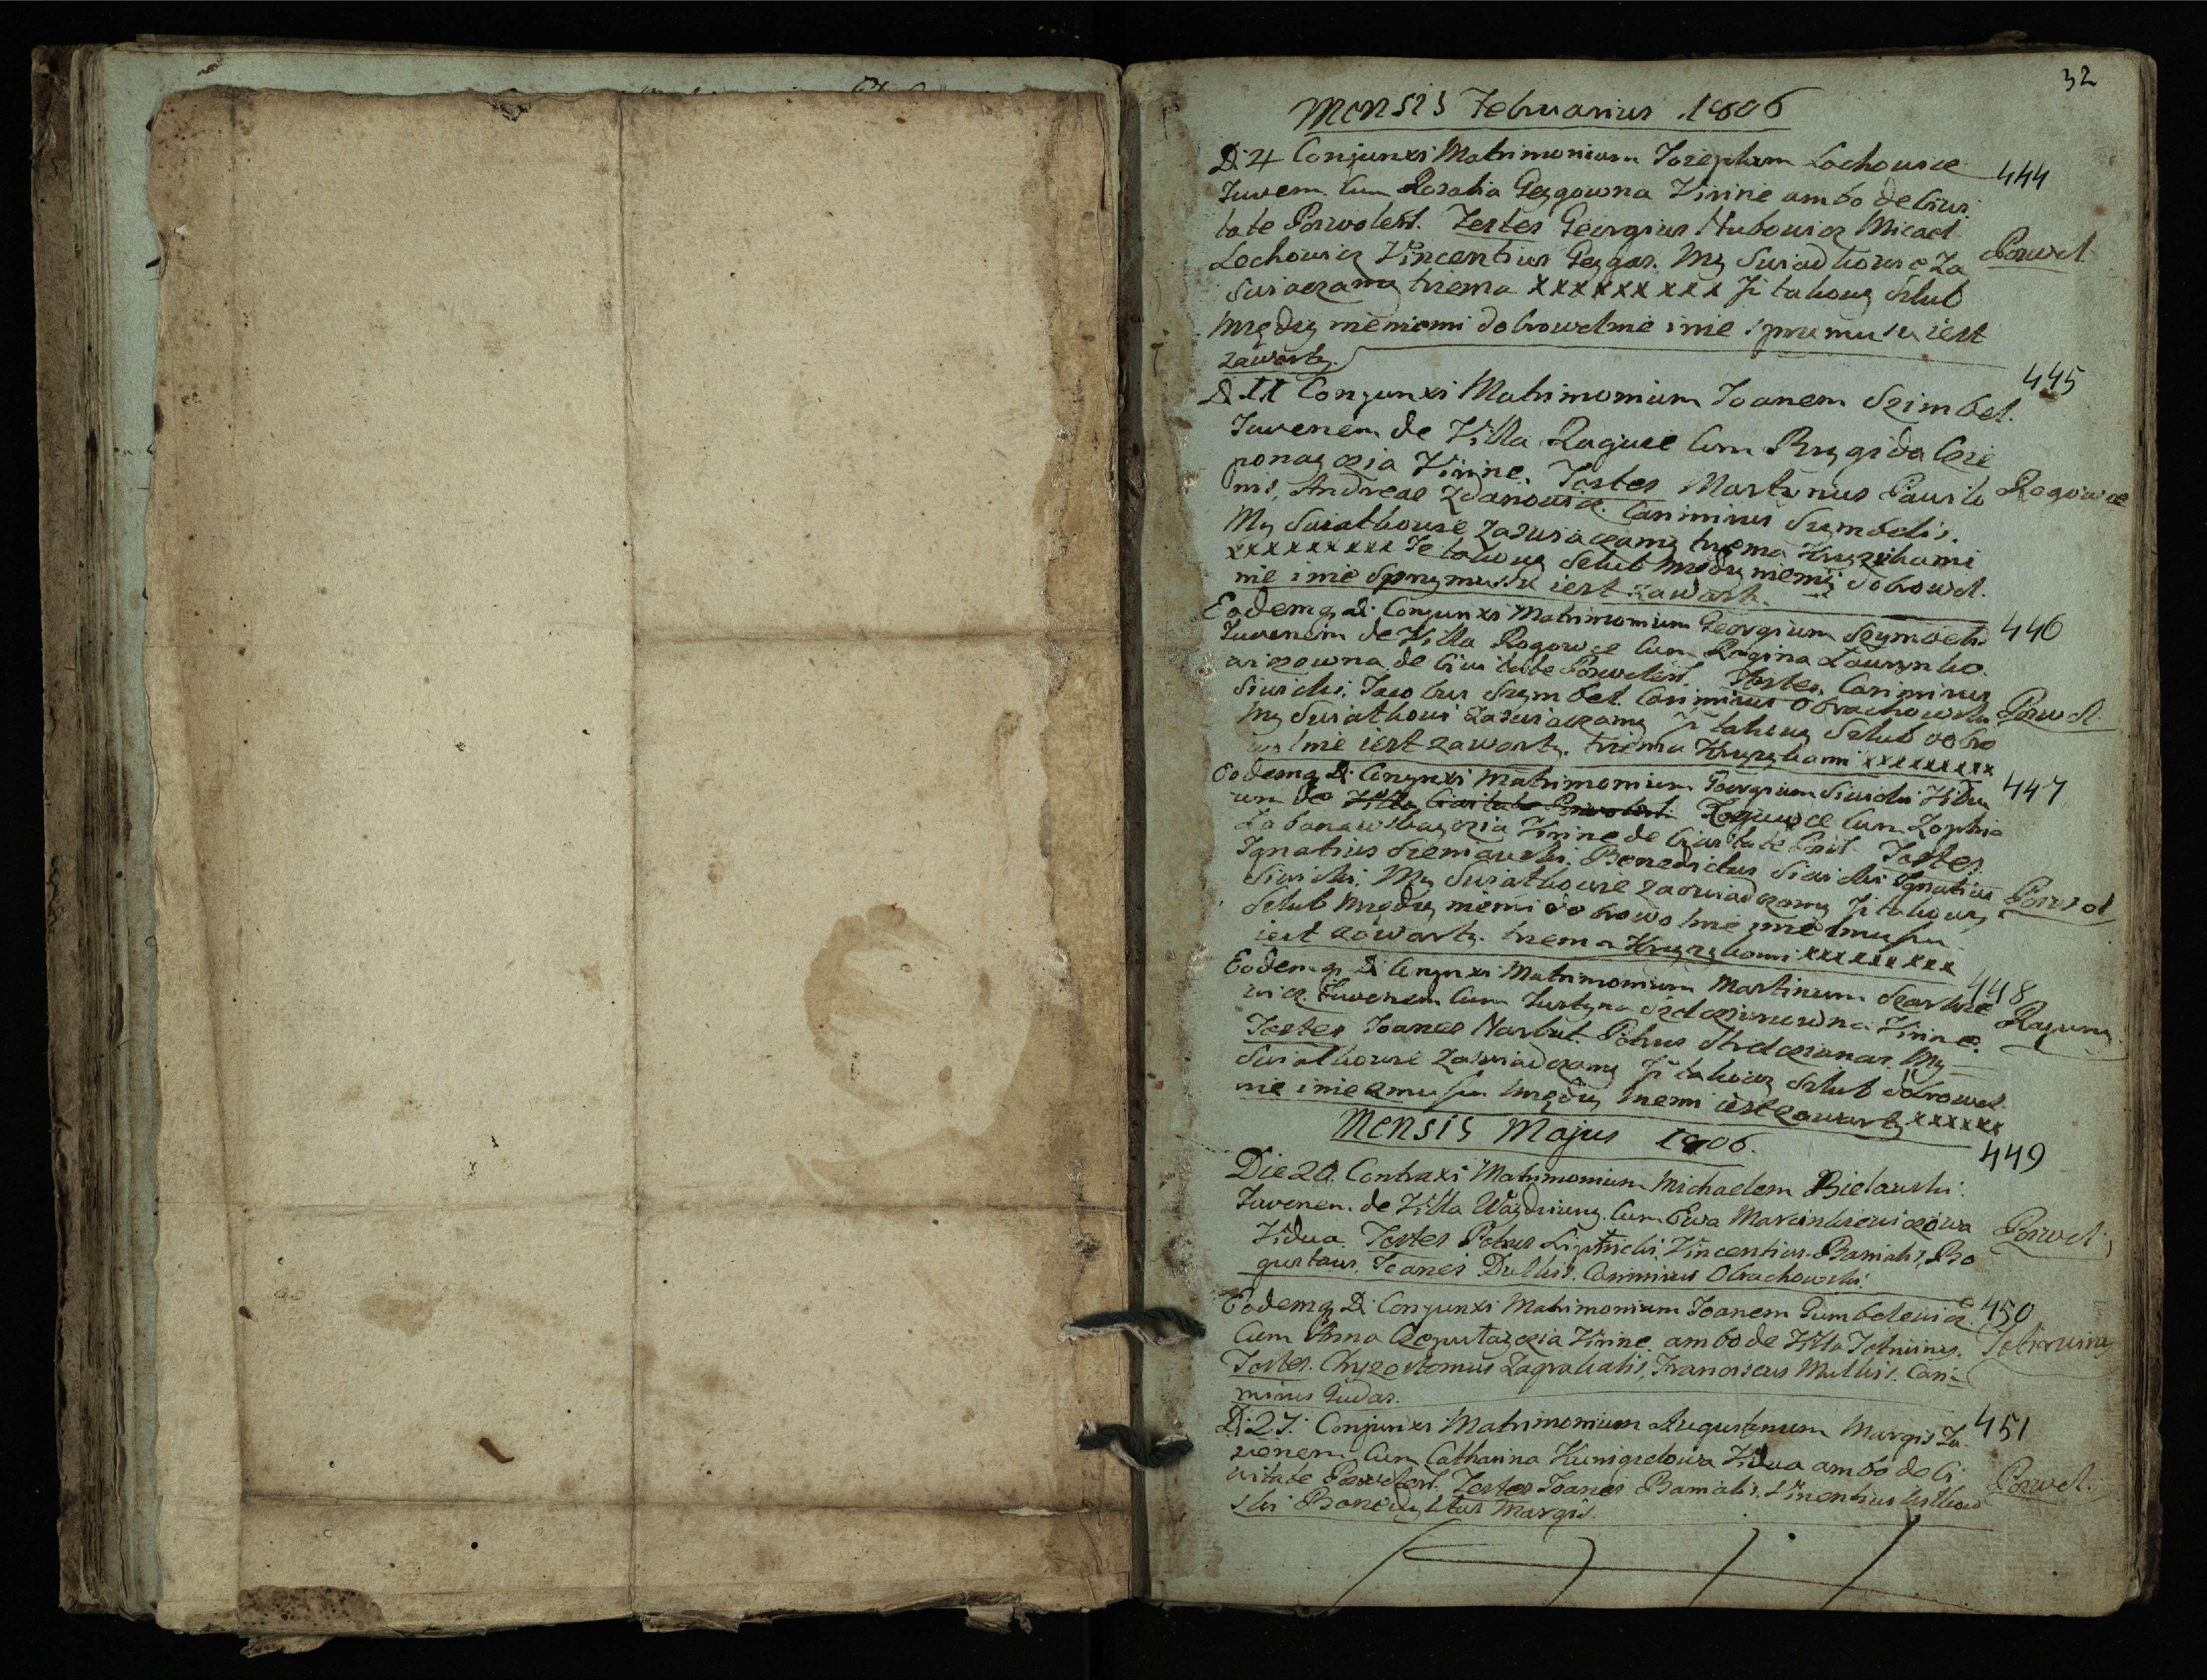 32
Mensis Februarius 1806
D: 4 Conjunxi Matrimonium Josephum Lochowicz 444
Juvem. Cum Rosalia Gezgowna Virine ambo de Civi
tate Poswolens. Testes Georgius Micael
Lechowicz Vincentius Gezgas. My Swiadkowie Za Poswol.
swiaczamy trzema xxxxxxxxx Ji takowy Szlub
między niemiemi dobrowolnie i nie sprzymusu iest
zawarty.
D 11 Conjunxi Matrimonium Joanem Szimbel. 445
Juvenem de Villa Raguie Cum Brygida Cze
ponayczia Virine. Testes Martinus Pawilo Rogowce
nis, Andreas Zdanowicz. Casimirus Szymbelis.
My Swiatkowie zaswiaczamy trzema Kryzykami
xxxxxxxxx Je takowy Szlub między niemy dobrowol.
nie i nie sprzymusu iest zawart.
Eodemq Di Conjunxi Matrimonium Georgium Szymbel. 446
Juvenem de Villa Rogowce Cum Regina Lawrynko
wiczowna de Civitate Poswolens. Testes Casimirus
Siwicki. Jacobus Szymbel. Casimirus Obrachowski Poswol.
My Swiatkowi zaswiaczamy Ji takowy Szlub dobro
wolnie iest zawarty. trzema Kryzykami xxxxxxxxx
Eodemq Di Conjunxi Matrimonium Georgium Siwicki Vidu 447
um de Villa Civitate Poswolens. Roguwce Cum Zophia
Virine de Civitate Posw. Testes
Ignatius Sieniawski. Benedictus Siwicki Ignatius
Siwicki. My Swiatkowie zaswiadczamy Ji takowy Poswol
Szlub między niemi dobrowolnie i nie zmusu
iest zawarty. trzema Kryzykami xxxxxxxxx
Eodemq Di Conjunxi Matrimonium Martinum Szarkie 448
wicz Juvenem Cum Justyna Virine. Raguny
Testes Joanes Narbut. Petrus My
Swiatkowie zaswiadczamy Ji takowy Szlub dobrowol.
nie i nie zmusu między niemi iest zawarty xxxxxx
Mensis Majus 1806.
449
Die 20 Contraxi Matrimonium Michaelem Bielawski
Juvenem. de Villa Cum Ewa Marcinkiewiczowa
Vidua Testes Petrus Vincentius Banialis, Bo Poswol
gustaus, Joanes Dulkis. Casimirus Obrachowski.
Eodemq Di Conjunxi Matrimonium Joanem Gumbelewicz. 450
Cum Anna Virine ambo de Villa
Testes. Chryzostomus Zagrakalis, Franciscus Mulkis. Casi=
mirus Gudas.
D: 27. Conjunxi Matrimonium Augustinum Margis Ju 451
venem Cum Catharina Vidua ambo de Ci
vitate Poswolens. Testes Joanes Banialis. Vincentius Poswol.
ski Benedyktus Margis.